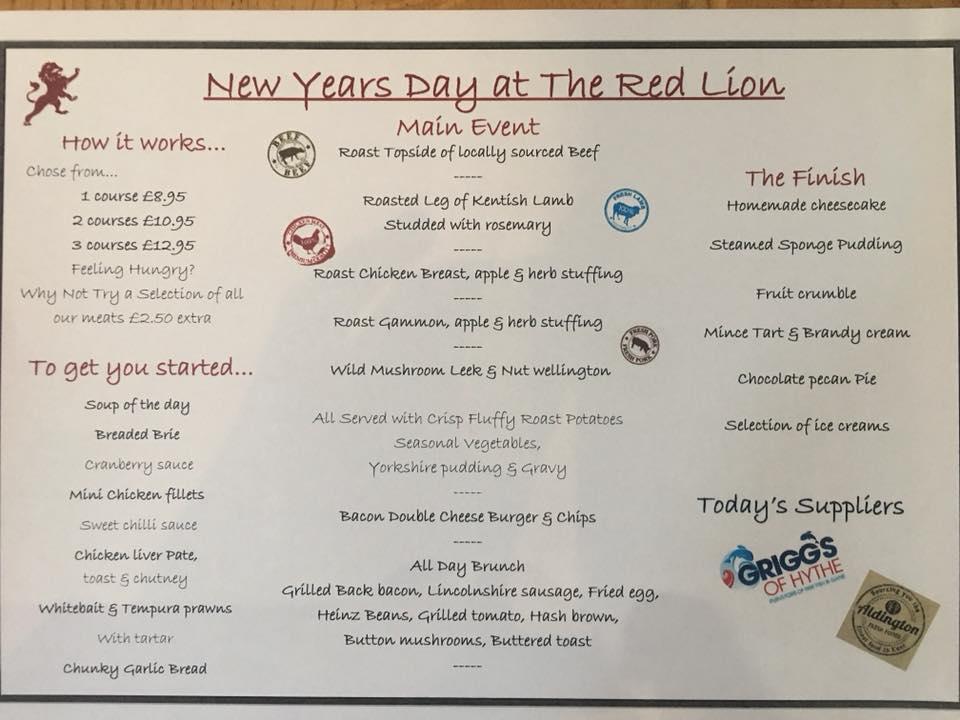 New Years Day at The Red Lion
How it works...
Chose from...
1 course £8.95
2 courses £10.95
3 courses £12.95
Feeling Hungry?
Why Not Try a Selection of all
our meats £2.50 extra
To get you started...
Soup of the day
Breaded Brie
Cranberry sauce
Mini Chicken fillets
Sweet chilli sauce
Chicken liver Pate,
toast & chutney
Whitebait & Tempura prawns
With tartar
Chunky Garlic Bread
Main Event
BEEF
BEEF
Roast Topside of locally sourced Beef
-----
Roasted Leg of Kentish Lamb
Studded with rosemary
FRESH LAMB
100%
-----
100%
Roast Chicken Breast, apple & herb stuffing
-----
Roast Gammon, apple & herb stuffing
FRESH PORK
FRESH PORK
-----
Wild Mushroom Leek & Nut wellington
All Served with Crisp Fluffy Roast Potatoes
Seasonal Vegetables,
Yorkshire pudding & Gravy
-----
Bacon Double Cheese Burger & Chips
-----
All Day Brunch
Grilled Back bacon, Lincolnshire sausage, Fried egg,
Heinz Beans, Grilled tomato, Hash brown,
Button mushrooms, Buttered toast
-----
The Finish
Homemade cheesecake
Steamed Sponge Pudding
Fruit crumble
Mince Tart & Brandy cream
Chocolate pecan Pie
Selection of ice creams
Today's Suppliers
GRIGGS
OF HYTHE
Sourcing you the
Aldington
finest food in Kent